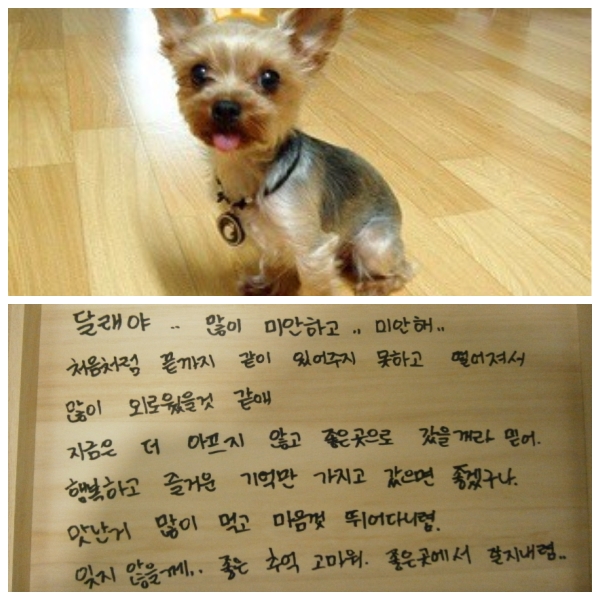 달래야 .. 많이 미안하고 .. 미안해..
처음처럼 끝까지 같이 있어주지 못하고 떨어져서
많이 외로웠을것 같애
지금은 더 아프지 않고 좋은곳으로 갔을꺼라 믿어.
행복하고 즐거운 기억만 가지고 갔으면 좋겠구나.
맛난거 많이 먹고 마음껏 뛰어다니렴.
잊지 않을께.. 좋은 추억 고마워. 좋은곳에서 잘지내렴..